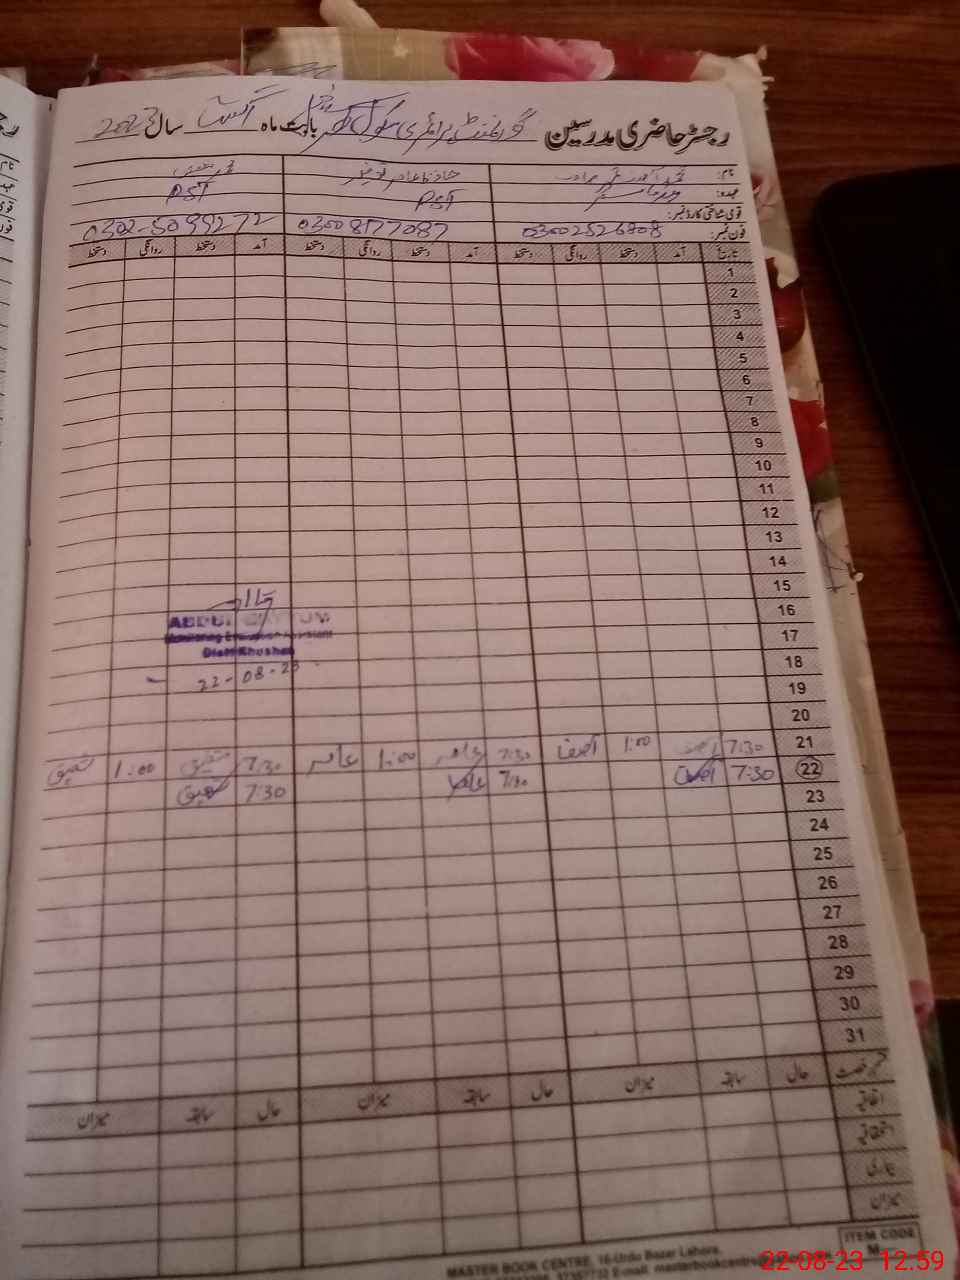 رجسٹر حاضری مدرسین گورنمنٹ پرائمری سکول بابت ماہ اگست سال 2023
نام:
عہدہ: PST PST
قومی شناختی کارڈ نمبر:
فون نمبر: 03002526808 03008177087 0302-5099272
تاریخ آمد دستخط روانگی دستخط آمد دستخط روانگی دستخط آمد دستخط روانگی دستخط
1
2
3
4
5
6
7
8
9
10
11
12
13
14
15
16
17
Monitoring Evaluation Assistant
Distt Khushab
18
22-08-23
19
20
21 7:30 آصف 1:00 آصف 7:30 عامر 1:00 عامر 7:30 شفیق 1:00 شفیق
22 7:30 آصف 7:30 عامر 7:30 شفیق
23
24
25
26
27
28
29
30
31
حال سابقہ میزان حال سابقہ میزان حال سابقہ میزان
اتفاقیہ
استحقاقیہ
بیماری
میزان
ITEM CODE
MASTER BOOK CENTRE, 16-Urdu Bazar Lahore.
22-08-23 12.59